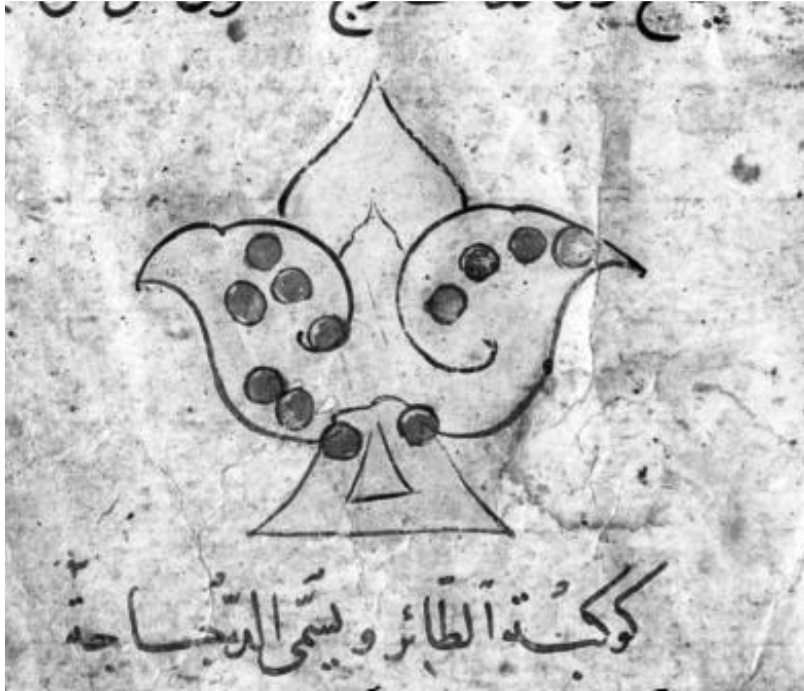 كوكبة الطَّائر ويسَمَّى الدّجاجة